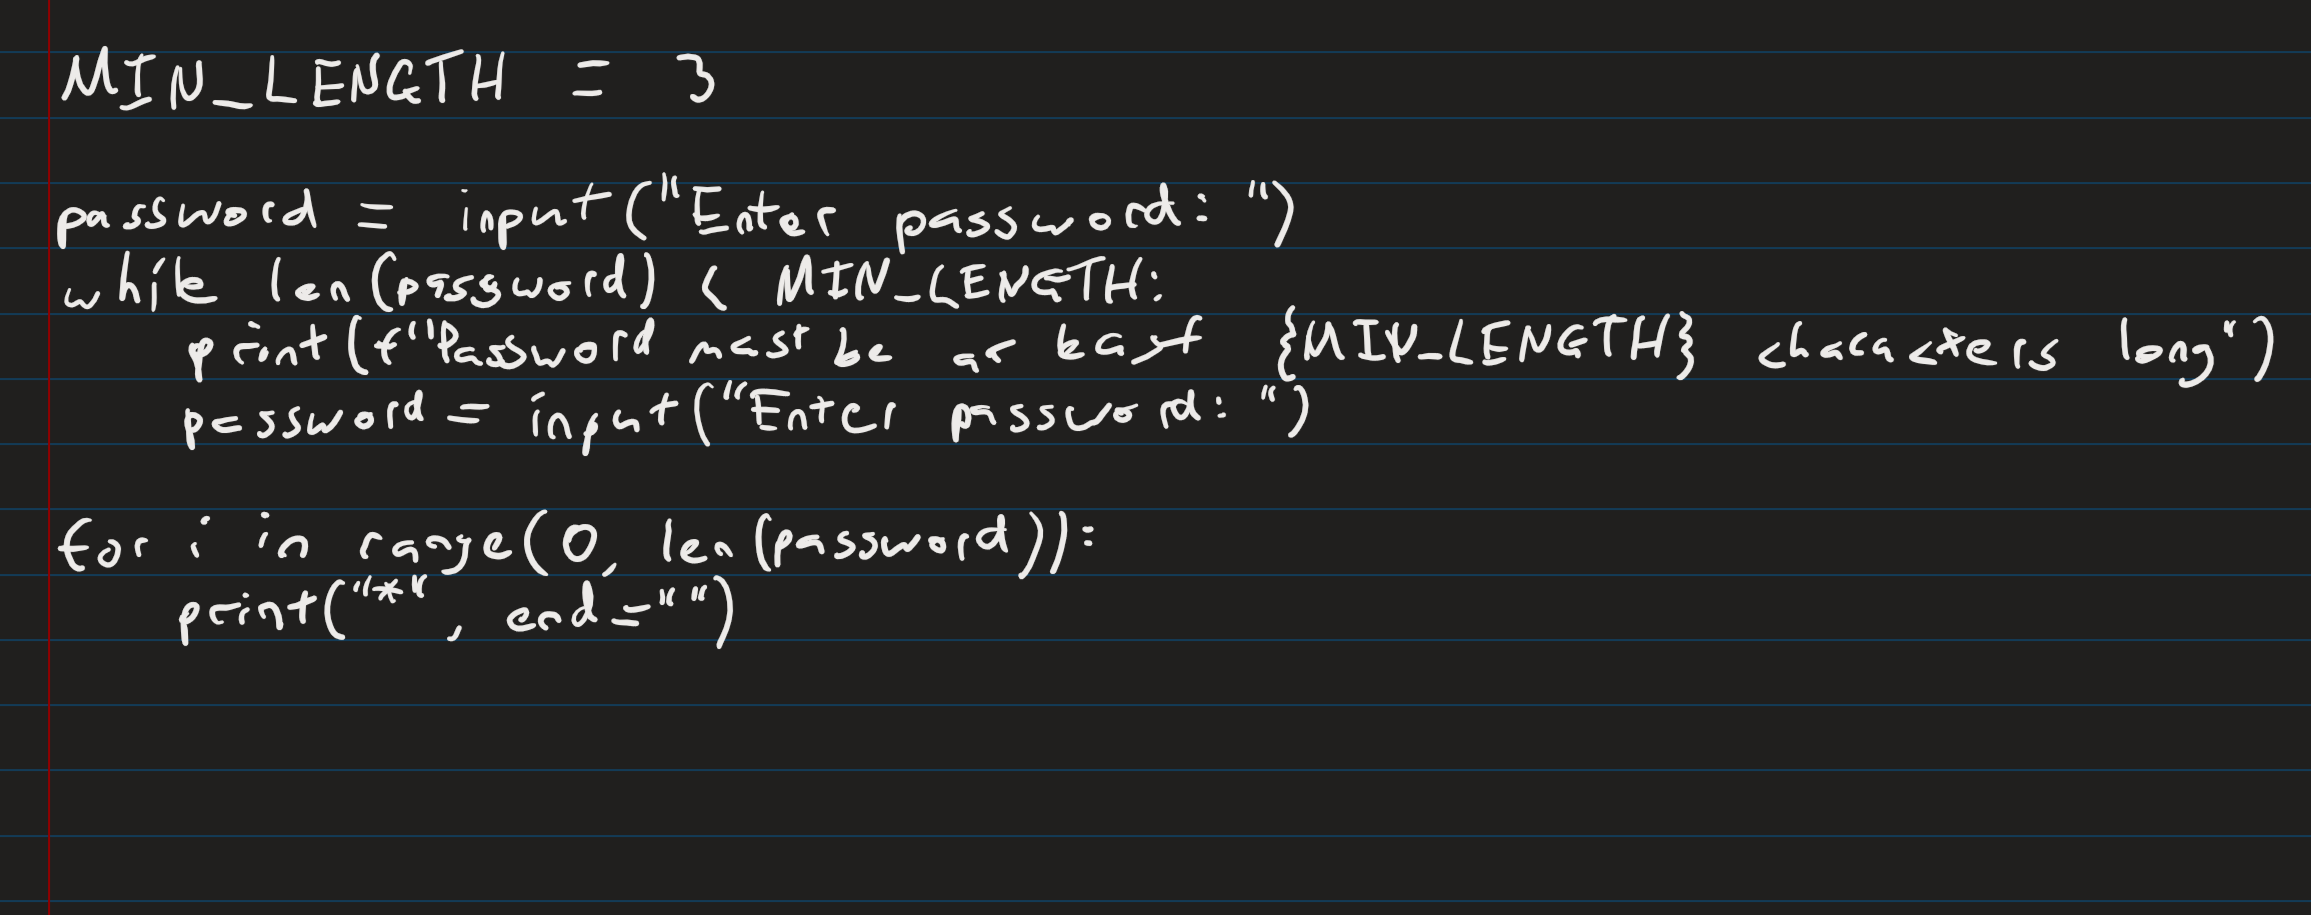 MIN_LENGTH = 3
password = input("Enter password: ")
while len(password) < MIN_LENGTH:
    print(f"Password must be at least {MIN_LENGTH} characters long")
    password = input("Enter password: ")
for i in range(0, len(password)):
    print("*", end="")